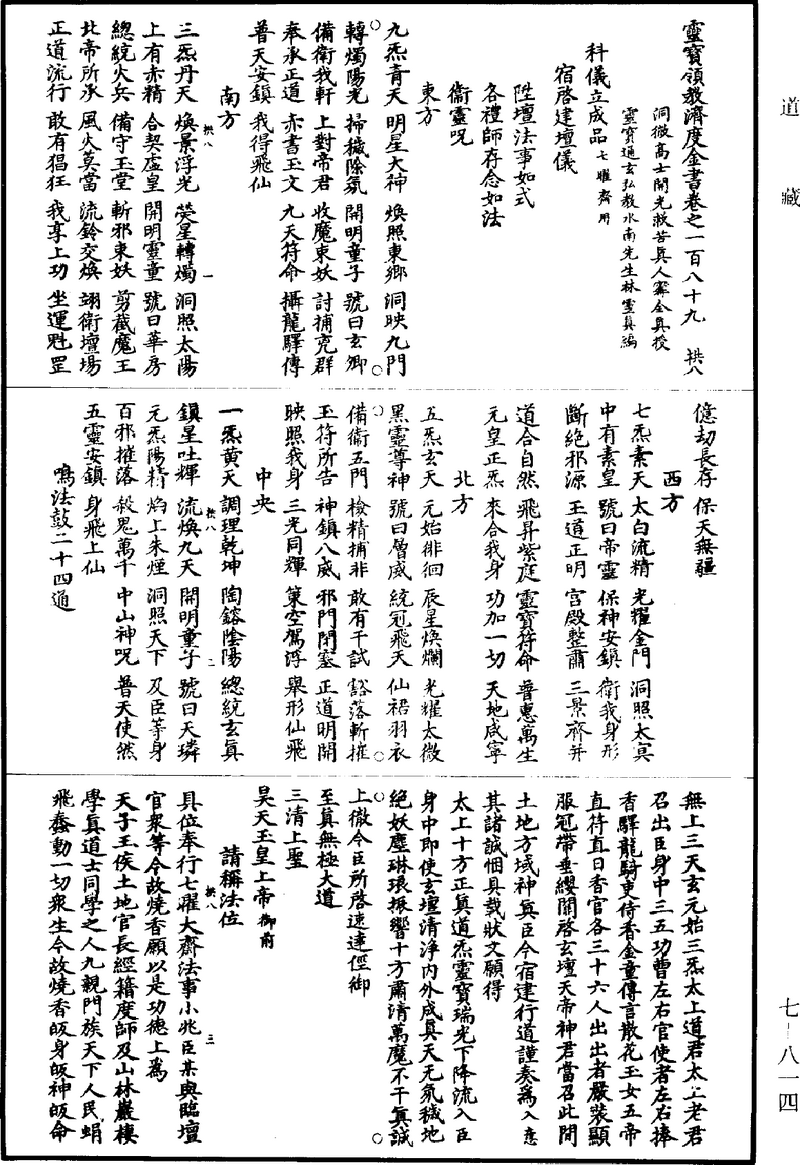 道藏
靈寶領教濟度金書卷之一百八十九 拱八
洞微高士開光救苦真人甯全真授
靈寶通玄弘教水南先生林靈真編
科儀立成品 七曜齋用
宿啓建壇儀
陞壇法事如式
各禮師存念如法
衛靈呪
東方
九炁青天 明星大神 煥照東鄉 洞映九門
轉燭陽光 掃穢除氛 開明童子 號曰玄卿
備衛我軒 上對帝君 收魔束妖 討捕凶群
奉承正道 赤書玉文 九天符命 攝龍驛傳
普天安鎮 我得飛仙
南方
三炁丹天 煥景浮光 熒星轉燭 洞照太陽
上有赤精 合契虛皇 開明靈童 號曰華房
總統火兵 備守玉堂 斬邪束妖 剪截魔王
北帝所承 風火莫當 流鈴交煥 翊衛壇場
正道流行 敢有猖狂 我享上功 坐運魁罡
億劫長存 保天無疆
西方
七炁素天 太白流精 光耀金門 洞照太冥
中有素皇 號曰帝靈 保神安鎮 衛我身形
斷絕邪源 王道正明 宮殿整肅 三景齊并
道合自然 飛昇紫庭 靈寶符命 普惠萬生
元皇正炁 來合我身 功加一切 天地咸寧
北方
五炁玄天 元始徘徊 辰星煥爛 光耀太微
黑靈尊神 號曰層威 統冠飛天 仙裙羽衣
備衛五門 檢精捕非 敢有干試 豁落斬摧
玉符所告 神鎮八威 邪門閉塞 正道明開
映照我身 三光同輝 策空駕浮 舉形仙飛
中央
一炁黃天 調理乾坤 陶鎔陰陽 總統玄真
鎮星吐輝 流煥九天 開明童子 號曰天璘
元炁陽精 焰上朱煙 洞照天下 及臣等身
百邪摧落 殺鬼萬千 中山神呪 普天使然
五靈安鎮 身飛上仙
鳴法鼓二十四通
無上三天玄元始三炁太上道君太上老君
召出臣身中三五功曹左右官使者左右捧
香驛龍騎吏侍香金童傳言散花玉女五帝
直符直日香官各三十六人出出者嚴裝顯
服冠帶垂纓關啓玄壇天帝神君當召此間
土地方域神真臣今宿建行道謹奏爲入意
其諸誠悃具載狀文願得
太上十方正真道炁靈寶瑞光下降流入臣
身中即使玄壇清淨內外成真天无氛穢地
絕妖塵琳琅振響十方肅清萬魔不干真誠
上徹令臣所啓速達徑御
至真無極大道
三清上聖
昊天玉皇上帝 御前
請稱法位
具位奉行七曜大齋法事小兆臣某與臨壇
官衆等今故燒香願以是功德上爲
天子王侯土地官長經籍度師及山林巖棲
學真道士同學之人九親門族天下人民蜎
飛蠢動一切衆生今故燒香皈身皈神皈命
七-八一四